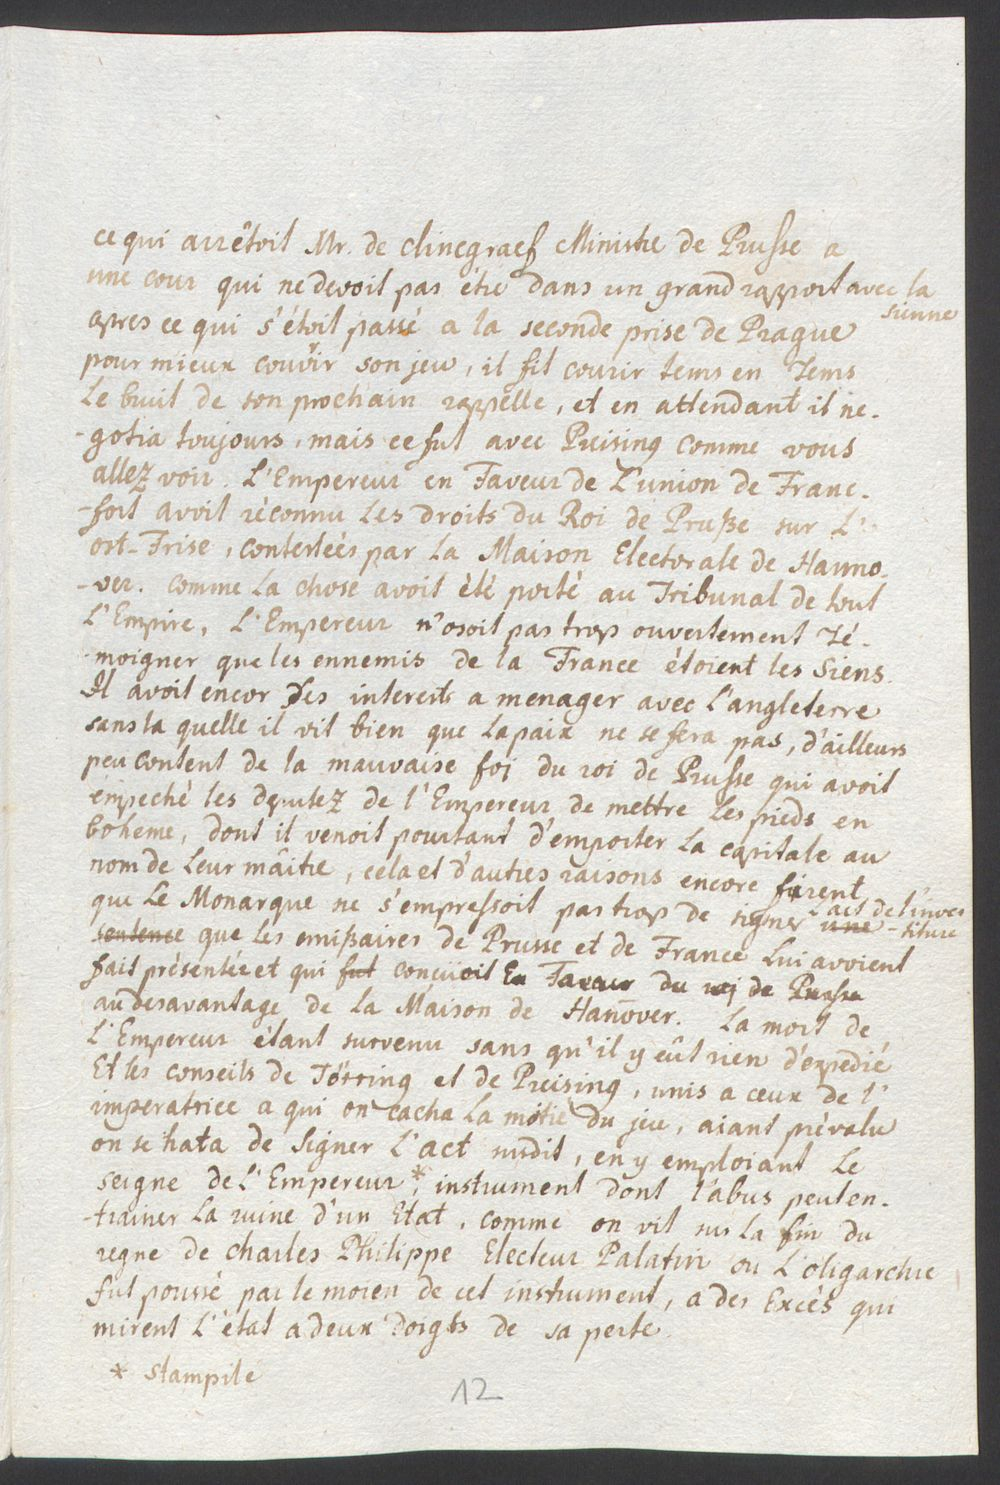 ce qui arrêtoit Mr. de clinegraef Ministre de Prusse a
une cour qui ne devoit pas étre dans un grand rapport avec la
sienne
apres ce qui s'étoit passé a la seconde prise de Prague
pour mieux couvrir son jeu, il fit courir tems en Tems
Le bruit de son prochain rappelle, et en attendant il ne-
-gotia toujours, mais ce fut avec Preising comme vous
allez voir. L'Empereur en Faveur de L'union de Franc-
-fort avoit réconnu Les droits du Roi de Pruße sur L'
ost-Frise, contesteés par La Maison Electorale de Hanno-
-ver. comme La chose avoit été porté au Tribunal de tout
L'Empire, L'Empereur n'osoit pas trop ouvertement Té-
-moigner que les ennemis de la France étoient les Siens.
Il avoit encor des interets a menager avec L'angleterre
sans la quelle il vit bien que La paix ne se fera pas, d'ailleurs
peu content de la mauvaise foj du roi de Prusse qui avoit
empeché les deputez de l'Empereur de mettre Les pieds en
boheme, dont il venoit pourtant d'emporter La capitale au
nom de Leur maître, cela et d'autres raisons encore firent
que Le Monarque ne s'empressoit pas trop de signer une L'act de l'inves-
-titure
sentence que Les emißaires de Prusse et de France Lui avoient
fait présentée et qui fut conçüoit En Faveur du roj de Prusse
au desavantage de La Maison de Hañover. La mort de
L'Empereur étant survenu sans qu'il y eût rien d'expedié
Et les conseils de Törring et de Preising, unis a ceux de l'
imperatrice a qui on cacha La motie du jeu, aiant prévalu
on se hata de signer L'act susdit, en y emploiant Le
seigne de L'Empereur*, instrument dont l'abus peut en-
-trainer La ruine d'un Etat, comme on vit sur La fin du
regne de charles Philippe Electeur Palatin ou L'oligarchie
fut poussé par le moien de cet instrument, a des Excès qui
mirent L'état a deux doigts de sa perte
* stampile
12